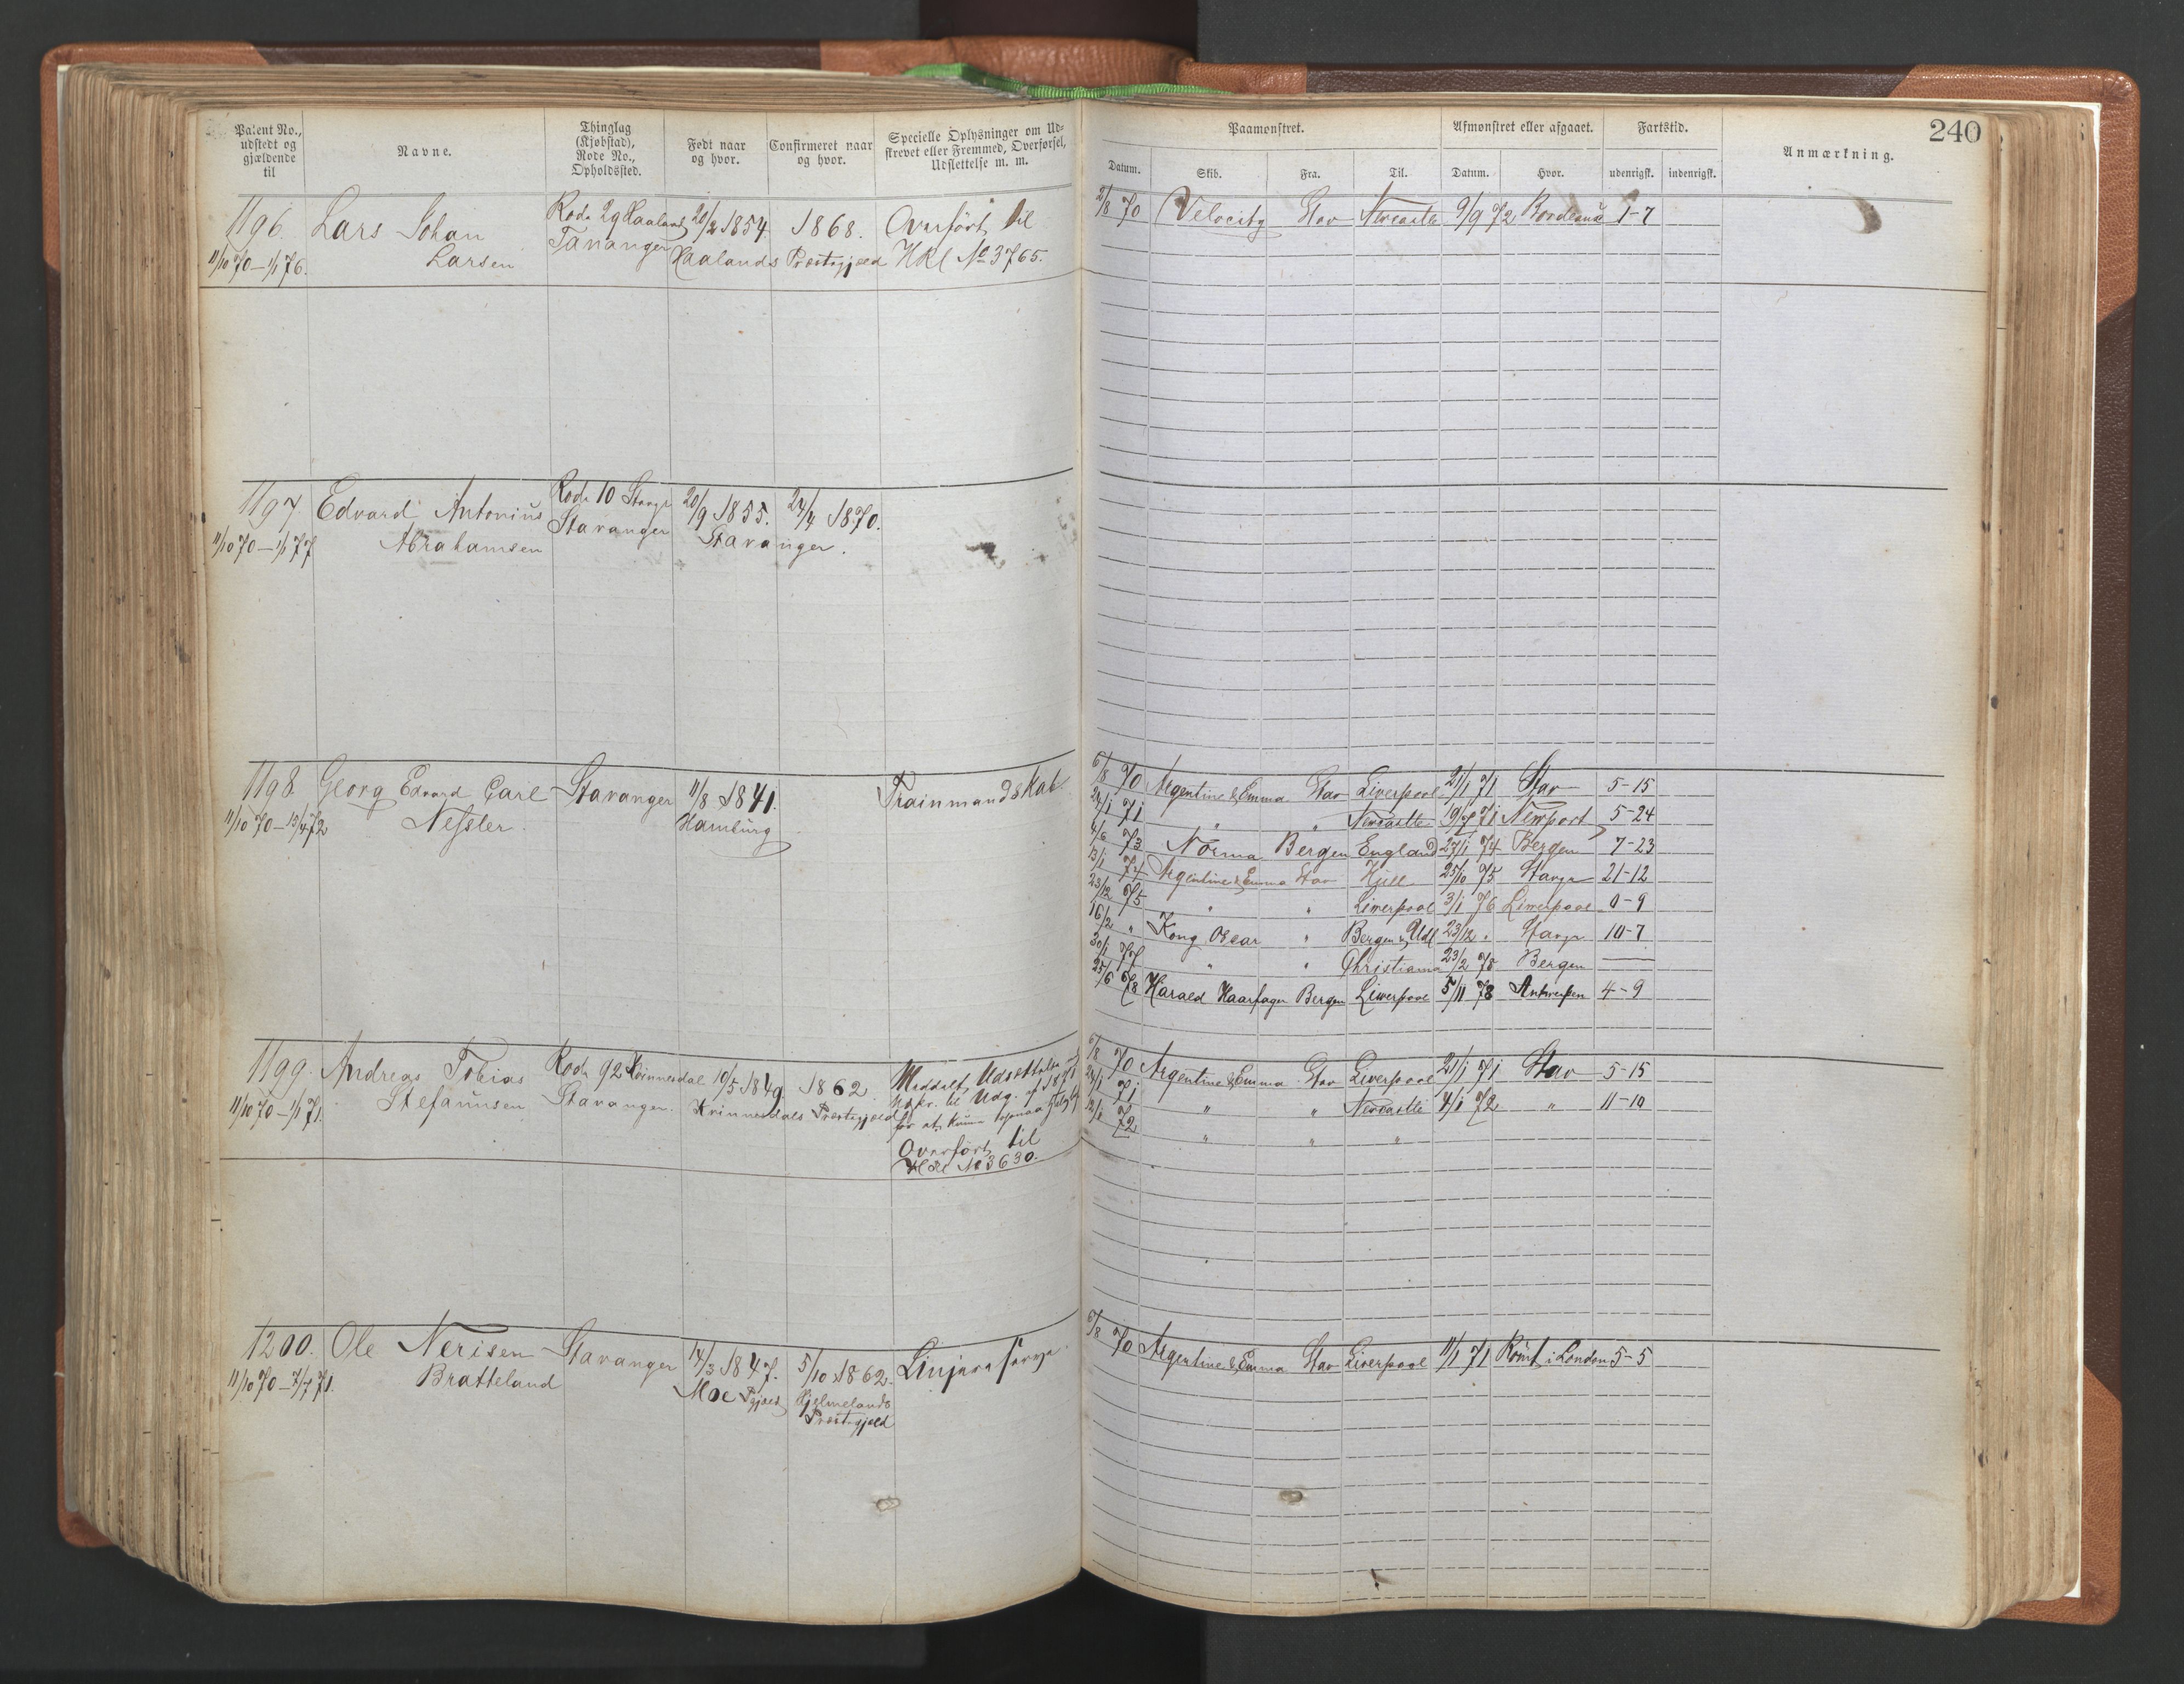 Patent No., udstedt og gjældende til
Navne.
Thinglag (Kjøbstad), Rode No., Opholdssted.
Født naar og hvor.
Confirmeret naar og hvor.
Specielle Oplysninger om Udskrevet eller Fremmed, Overførsel, Udslettelse m. m.
Paamonstret.
Afmonstret eller afgaaet.
Fartstid.
Anmærkning.
240
Datum.
Skib.
Fra.
Til.
Datum.
Hvor.
udenrigsk.
indenrigsk.
1196. Lars Johan Rode 29 Haaland 20/2 1854. 1868. Overført til
11/10 70 – 1/1 76. Larsen Tananger Haalands Præstegjæld HRl No 3765.
2/8 70 Velocity Stav Newcastle 9/9 72 Bordeaux 1-7
1197. Edvard Antonius Rode 10 Stavgr 20/9 1855. 24/4 1870.
11/10 70 – 1/1 77 Abrahamsen Stavanger Stavanger.
1198. Georg Edvard Carl Stavanger 11/8 1841. Trainmandskab
11/10 70 – 13/4 72 Nessler. Hamburg
6/8 70 Argentine & Emma Stav Liverpool 21/1 71 Stav 5-15
24/1 71 " " Newcastle 19/7 71 Newport 5-24
4/6 73 Norma Bergen England 27/1 74 Bergen 7-23
13/1 74 Argentine & Emma Stav Kjell 25/10 75 Stavgr 21-12
23/12 75 " " Liverpool 3/1 76 Liverpool 0-9
16/2 " Kong Oscar " Bergen & Udl 23/12 " Stavgr 10-7
30/1 77 " " Christiania 23/2 78 Bergen —
25/6 78 Harald Haarfager Bergen Liverpool 5/11 78 Antwerpen 4-9
1199. Andreas Tobias Rode 92 Kvinnesdal 10/5 1849. 1862. Meddelt Udsættelse
11/10 70 – 1/1 71. Stefanusen Stavanger. Kvinnesdals Præstegjæld til Udg. af 1871
for at kunne
Overført til
HRl No 3630.
6/8 70 Argentine & Emma Stav Liverpool 21/1 71 Stav 5-15
24/1 71 " " Newcastle 4/1 72 " 11-10
72 " " "
1200. Ole Nerisen Stavanger 14/3 1847. 5/10 1862. Linjereserve.
11/10 70 – 7/7 71. Bratteland Moe Pgjæld Hjelmelands
Præstegjæld
6/8 70 Argentine & Emma Stav Liverpool 11/1 71 Römt i London 5-5